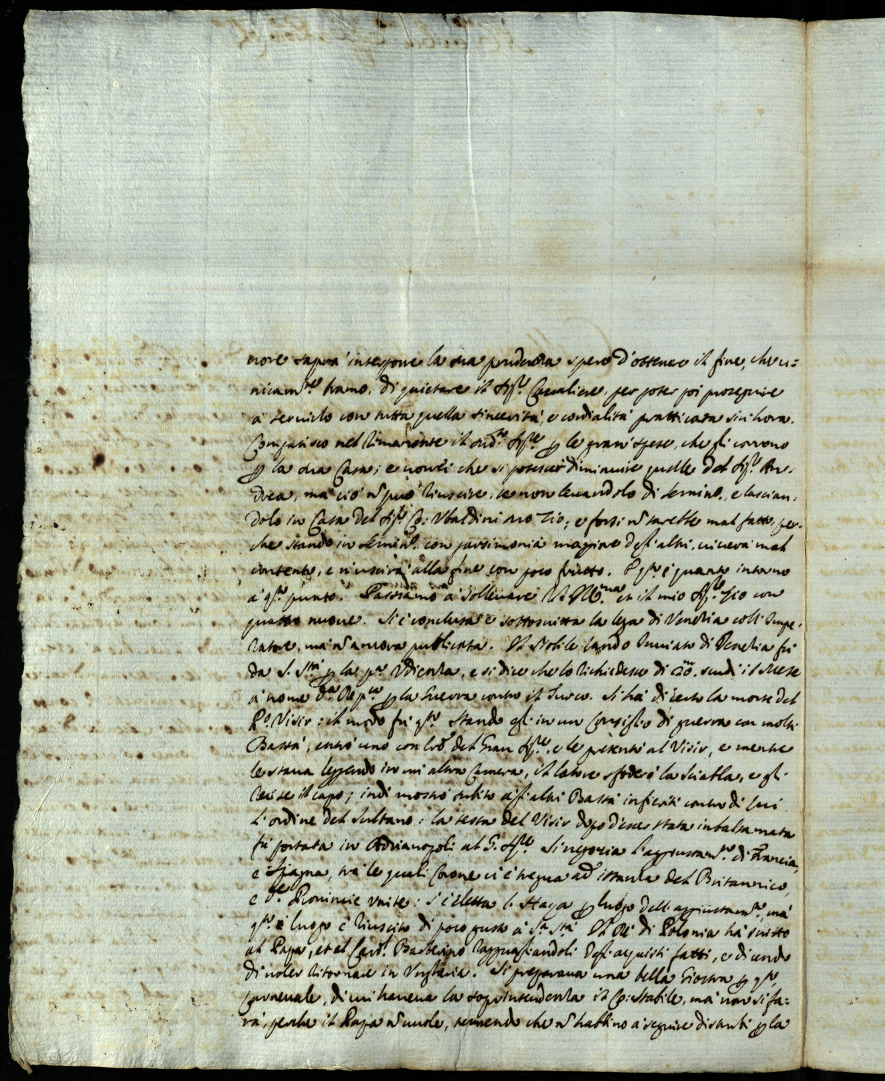 nore saprà interporre la sua prudenza spero d'ottener il fine, che u=
nicam.te bramo, di quietare il Sig.r Cavaliere, per poter poi proseguire
a servirlo con tutta quella sincerità, e cordialità pratticata sin'hora.
Compatisco nel rimanente il sud.o Sig.re p le gran spese, che gli corrono
p la sua Casa; e vorrei che si potesser diminuire quelle del Sig.r An=
drea, ma ciò nō può riuscire, se non levandolo di Semin.o e lascian=
dolo in Casa del Sig.r Co: Ubaldini suo Zio, e forsi nō sarebbe mal fatto, per=
che stando in Semin.o con parsimonia maggiore degl'altri, viverà mal
contento, e riuscirà alla fine con poco frutto. E q.to è quanto intorno
a q.to punto. Passiamo a sollevare V.S. Ill.ma et il mio Sig.re Zio con
quattro nuove. Si è conclusa e sottoscritta la lega di Venetia coll'Impe=
ratore, ma nō ancora publicata. Il Nobile Lando Inviato di Venetia fù
da S. S.tà p la p.a Udienza, e si dice che lo richiedesse di scudi il Mese
a nome d.a Rep.ca p la Guerra contro il Turco. Si hà di certo la morte del
P.o Visir: il modo fù q.to Stando egli in un Consiglio di guerra con molti
Bassà, entrò uno con l'ord.e del Gran Sig.re, e le presentò al Visir, e mentre
le stava leggendo in un'altra Camera, il latore sfoderò la Sciabla, e gli
recise il capo; indi mostrò subito agl'altri Bassà inferiti contro di lui
l'ordine del Sultano: la testa del Visir dopo d'esser stata imbalsamata
fù portata in Adrianopoli al G. Sig.re Si negozia l'aggiustam.to di Francia,
e Spagna, trà le quali Corone vi è tregua ad istanza del Britannico,
e d.e Provincie Unite: si è eletta l'Haya p luogo dell'aggiustam.to, mà
q.to luogo è riuscito di poco gusto a S. S.tà Il Rè di Polonia hà scritto
al Papa, et al Card.l Barberino ragguagliandoli degl'acquisti fatti, e dicendo
di voler ritornare in Ungheria. Si preparava una bella Giostra p q.to
Carnevale, di cui haveva la soprintendenza il Co:stabile, mà non si fa=
rà, perche il Papa nō vuole, temendo che nō habbino a seguire disturbi p la